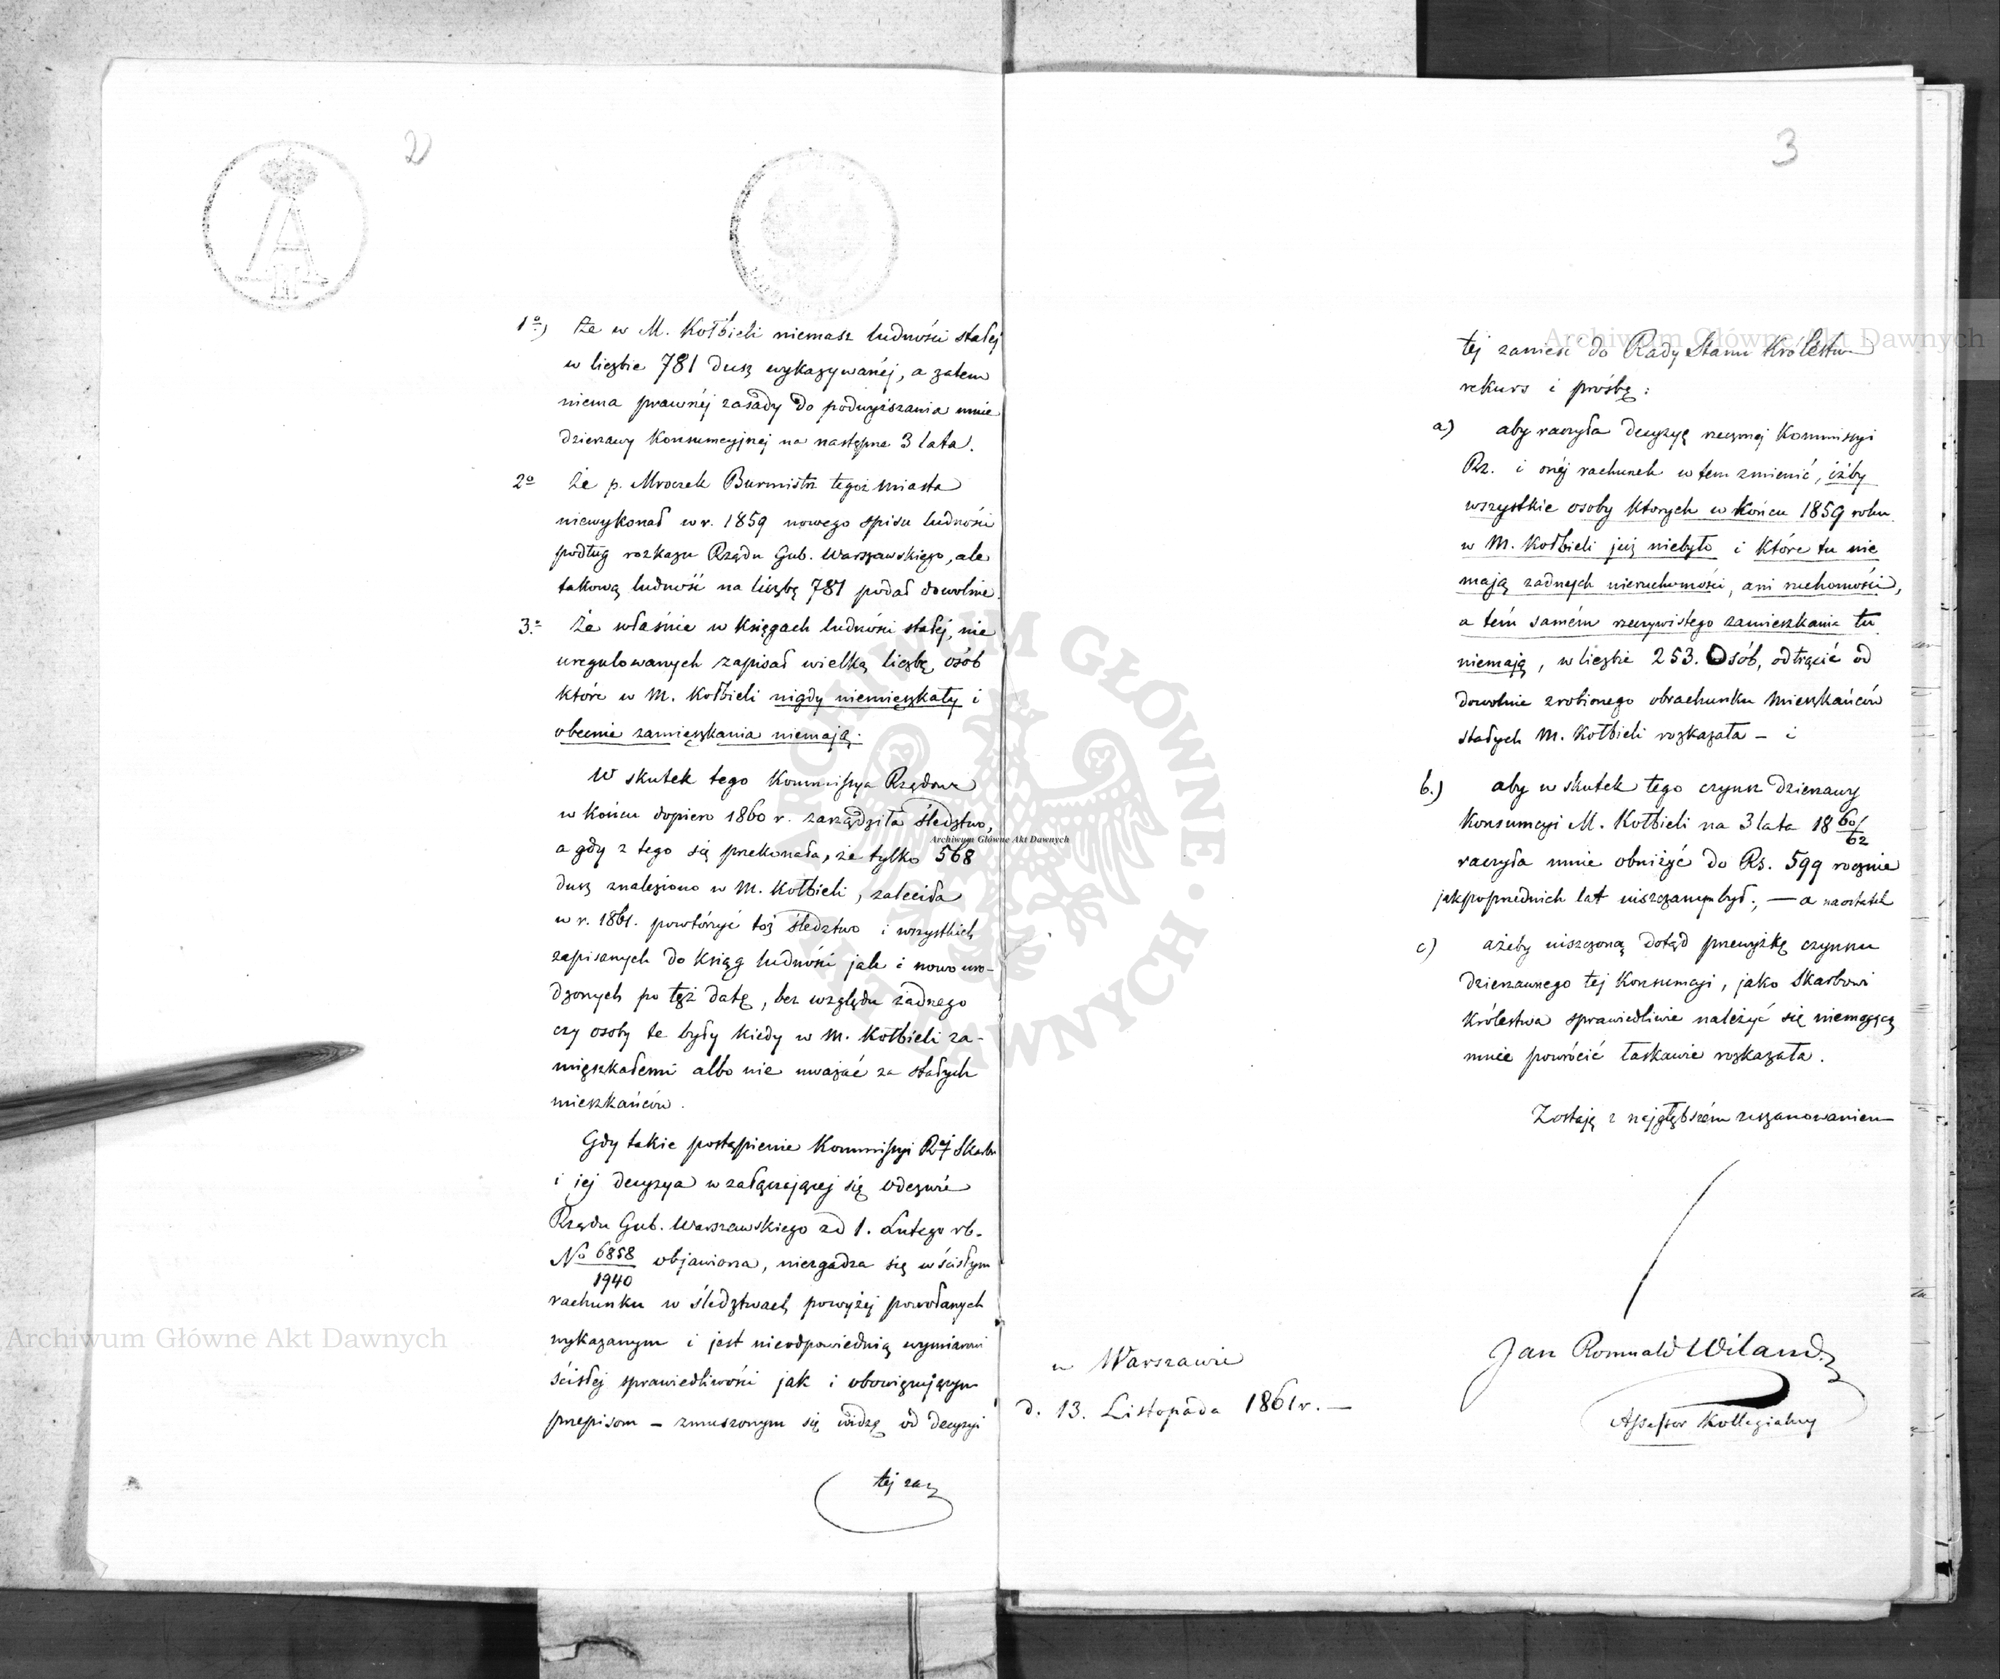 2
1o) Że w M. Kołbieli niemasz ludności stałej
w liczbie 781 dusz wykazywanéj, a zatem
niema prawnéj zasady do podwyższania mnie
dzierzawy Konsumcyjnej na następne 3 lata.
2o Że p. Mroczek Burmistrz tegoż miasta
niewykonał w r. 1859 nowego spisu ludności
podług rozkazu Rządu Gub. Warszawskiego, ale
takową ludność na liczbę 781 podał dowolnie.
3o Że właśnie w Księgach ludności stałej, nie
uregulowanych zapisał wielką liczbę osób
które w M. Kołbieli nigdy niemięszkały i
obecnie zamięszkania niemają.
W skutek tego Kommissya Rządowa
w końcu dopiero 1860 r. zarządziła śledztwo,
a gdy z tego się przekonała, że tylko 568
dusz znaleziono w M. Kołbieli, zaleciła
w r. 1861. powtórzyć toż śledztwo i wszystkich
zapisanych do Ksiąg ludności jak i nowo uro-
dzonych po tęż datę, bez względu żadnego
czy osoby te były kiedy w M. Kołbieli za-
mięszkałemi albo nie uważać za stałych
mieszkańców.
Gdy takie postąpienie Kommissyi Rząj Skarbu
i jej decyzya w załączającej się odezwie
Rządu Gub. Warszawskiego zd 1. Lutego rb.
No 6858/1940 objawiona, niezgadza się w ścisłym
rachunku w śledztwach powyżej powołanych
wykazanym i jest nieodpowiednią wymiarowi
ścisłej sprawiedliwości jak i obowiązującym
przepisom – zmuszonym się widzę od decyzyi
tej zan
3
tej zanieść do Rady Stanu Królestwa
rekurs i prośbę:
a) aby raczyła decyzyę rzeczonej Kommissyi
Rz. i onéj rachunek w tem zmienić, iżby
wszystkie osoby ktorych w końcu 1859 roku
w M. Kołbieli już niebyło i które tu nie
mają żadnych nieruchomości, ani ruchomości,
a tém samém rzeczywistego zamieszkania tu
niemają, w liczbie 253. Osób, odtrącić od
dowolnie zrobionego obrachunku Mieszkańców
stałych M. Kołbieli rozkazała – i
b.) aby w skutek tego czynsz dzierzawy
Konsumcyi M. Kołbieli na 3 lata 1860/62
raczyła mnie obniżyć do Rs. 599 rocznie
jak poprzednich lat uiszczanym był; — a naostatek
c) ażeby uiszczoną dotąd przewyżkę czynszu
dzierzawnego tej Konsumcyi, jako Skarbowi
Królestwa sprawiedliwie należyć się niemogącą
mnie powrócić łaskawie rozkazała.
Zostaję z najgłębszém uszanowaniem
Jan Romuald Wiland
Assessor Kollegialny
w Warszawie
d. 13. Listopada 1861 r. —
Archiwum Główne Akt Dawnych
Archiwum Główne Akt Dawnych
Archiwum Główne Akt Dawnych
ARCHIWUM GŁÓWNE · AKT DAWNYCH ·